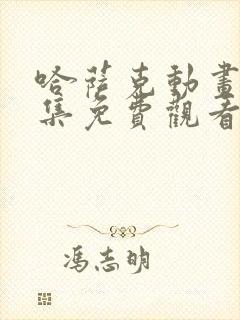 哈薩克動畫
集免費觀看
馮志明